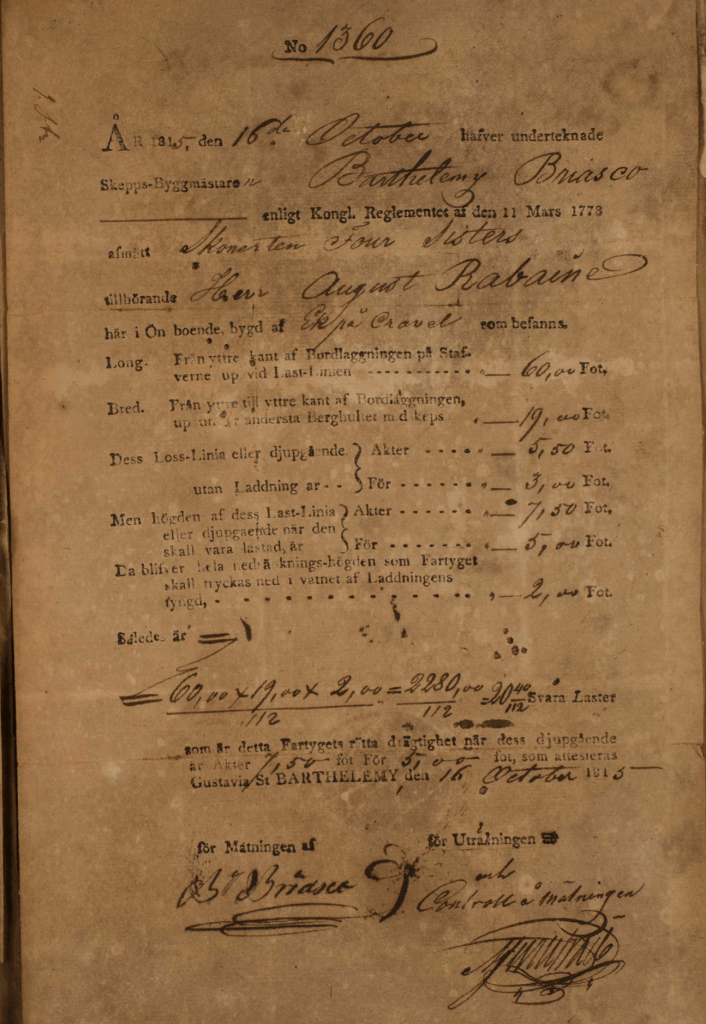 No 1360
ÅR 1815, den 16de October hafver underteknade
Skepps-Byggmästaren Barthelemy Briasco
enligt Kongl. Reglementet af den 11 Mars 1778
afmätt Skonerten Four Sisters
tillhörande Herr August Rabaine
här i Ön boende, bygd af Ek på Cravel som befanns.
Long. Från yttre kant af Bordläggningen på Staf-
verne up vid Last-Linien - - - - - - - - - - - " — 60,00 Fot.
Bred. Från yttre till yttre kant af Bordläggningen,
up under understa Berghultet midskeps " — 19,00 Fot.
Dess Loss-Linia eller djupgående } Akter - - - - - " — 5,50 Fot.
utan Laddning är - - } För - - - - - - " — 3,00 Fot.
Men högden af dess Last-Linia } Akter - - - - - - " — 7,50 Fot.
eller djupgaende när den
skall vara lastad, är } För - - - - - - " — 5,00 Fot.
Da blifver hela nedsänknings-högden som Fartyget
skall tryckas ned i vatnet af Laddningens
tyngd, - - - - - - - - - - - - - " — 2,00 Fot.
Således är =
= 60,00 x 19,00 x 2,00 / 112 = 2280,00 / 112 = 20 40/112 Svåra Laster
som är detta Fartygets rätta drägtighet när dess djupgående
är Akter 7,50 fot För 5,00 fot, som attesteras
Gustavia St BARTHELEMY, den 16 October 1815
för Mätningen af för Uträkningen
och
Bt Briasco Controll å Mätningen